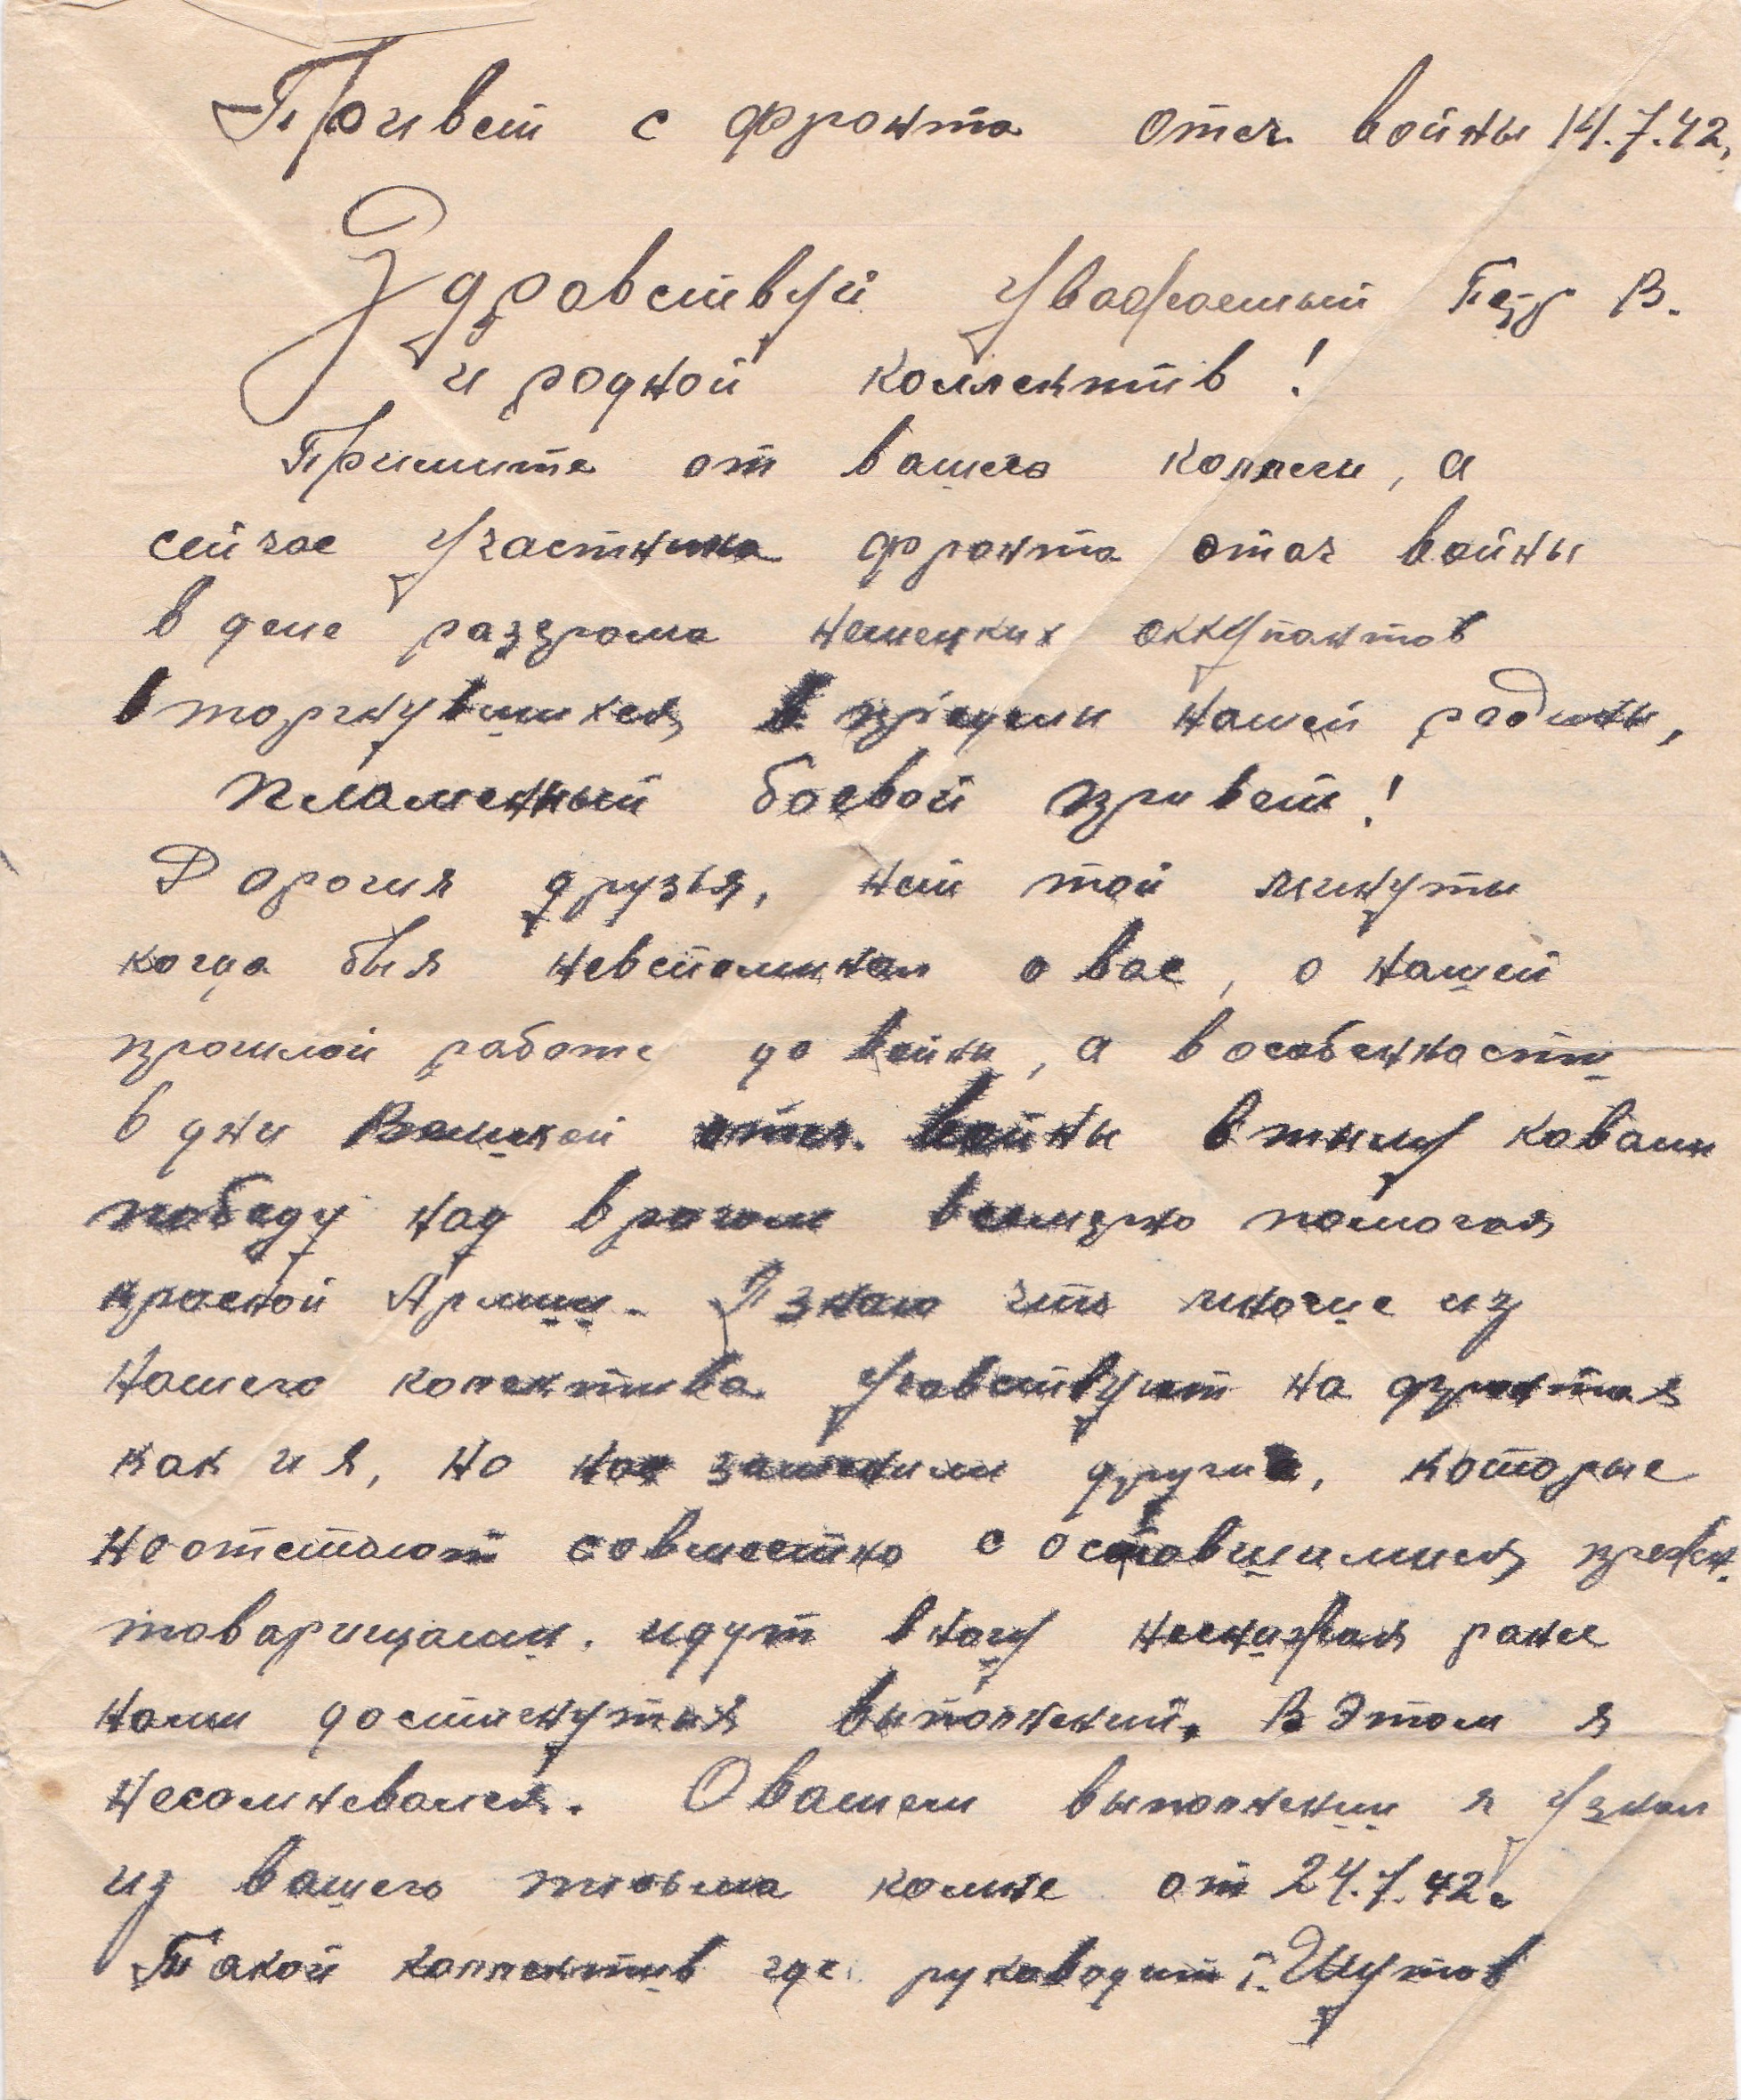 Привет с фронта отеч. войны 14.7.42,
Здравствуй уважаемый Петр В.
и родной коллектив!
Примите от вашего коллеги, а
сейчас участника фронта отеч войны
в деле разгрома немецких оккупантов
вторгнувшихся в пределы нашей родины,
пламенный боевой привет!
Дорогия друзья, нет той минуты
когда бы я невспоминал о вас, о нашей
прошлой работе до войны, а в особенности
в дни Великой отеч. войны в тылу ковали
победу над врагом помогая
красной Армии. Я знаю что многие из
нашего колектива участвуют на фронтах
как и я, но нас заменили другие, которые
неотстают совместно с оставшимися прежн.
товарищами. идут в ногу неснижая ранее
нами достигнутых выполнений. В этом я
несомневался. О вашем выполнении я узнал
из вашего письма комне от 24.7.42г
Такой коллектив где руководит т. Шутов